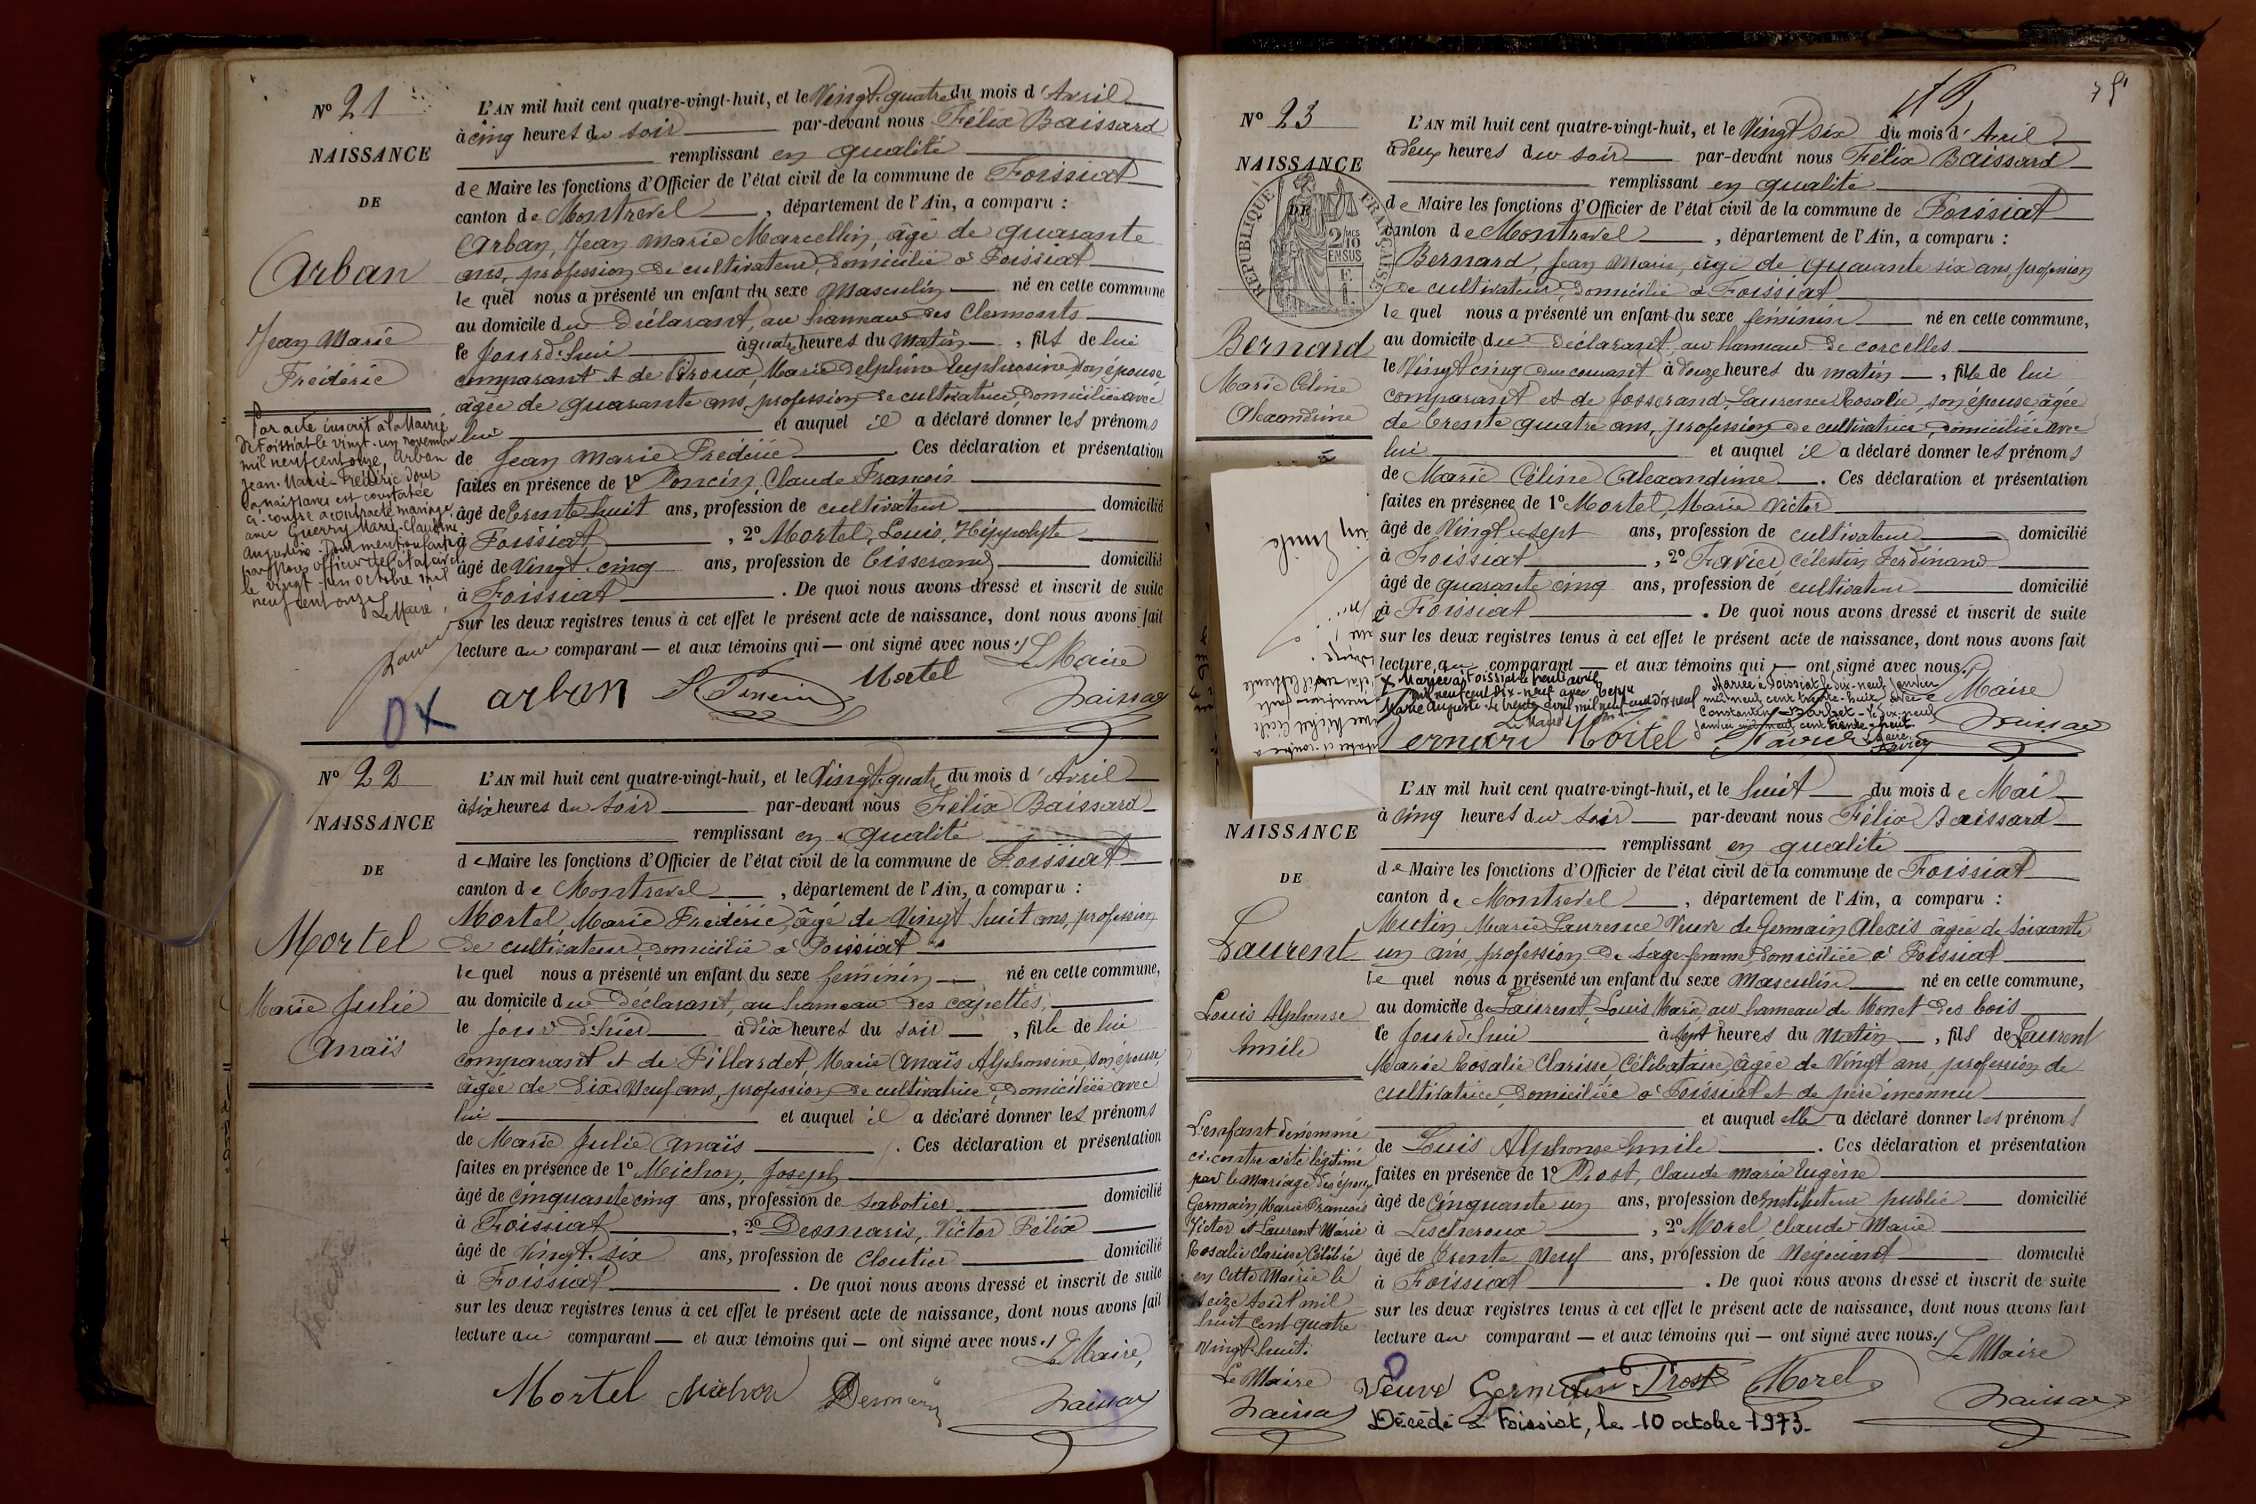 Nº 21
NAISSANCE
DE
Arban
Jean Marie
Frédéric
Par acte inscrit à la Mairie
de Foissiat le vingt-un novembre
mil neuf cent onze, Arban
Jean-Marie-Frédéric dont
la naissance est constatée
ci-contre a contracté mariage
avec Guerry Marie-Claudine
Augustine. Dont mention faite
par nous officier de l'état civil
le vingt-un octobre mil
neuf cent onze
Le Maire,
L'AN mil huit cent quatre-vingt-huit, et le Vingt-quatre du mois d'Avril
à cinq heures du soir par-devant nous Félix Baissard
remplissant en qualité
de Maire les fonctions d'Officier de l'état civil de la commune de Foissiat
canton de Montrevel, département de l'Ain, a comparu :
Arban, Jean Marie Marcellin, âgé de quarante
ans, profession de cultivateur, domicilié à Foissiat
le quel nous a présenté un enfant du sexe Masculin né en cette commune
au domicile du Déclarant, au hameau des Clermonts
le jourd'hui à quatre heures du matin, fils de lui
comparant et de Piroux, Marie Delphine Euphrosine, son épouse
âgée de quarante ans, profession de cultivatrice, domiciliée avec
lui et auquel il a déclaré donner les prénoms
de Jean Marie Frédéric Ces déclaration et présentation
faites en présence de 1º Poncin, Claude François
âgé de trente huit ans, profession de cultivateur domicilié
à Foissiat, 2º Mortel, Louis, Hippolyte
âgé de Vingt-cinq ans, profession de Tisserand domicilié
à Foissiat. De quoi nous avons dressé et inscrit de suite
sur les deux registres tenus à cet effet le présent acte de naissance, dont nous avons fait
lecture au comparant — et aux témoins qui — ont signé avec nous./.
Le Maire
arban Poncin Mortel
Baissard
Nº 22
NAISSANCE
DE
Mortel
Marie Julie
Anaïs
L'AN mil huit cent quatre-vingt-huit, et le Vingt-quatre du mois d'Avril
à six heures du soir par-devant nous Félix Baissard
remplissant en qualité
de Maire les fonctions d'Officier de l'état civil de la commune de Foissiat
canton de Montrevel, département de l'Ain, a comparu :
Mortel, Marie Frédéric, âgé de Vingt huit ans, profession
de cultivateur, domicilié à Foissiat
le quel nous a présenté un enfant du sexe féminin né en cette commune,
au domicile du Déclarant, au hameau des capettes,
le jour d'hier à dix heures du soir, fille de lui
comparant et de Pillardet, Marie Anaïs Alphonsine, son épouse,
âgée de Dix-Neuf ans, profession de cultivatrice, domiciliée avec
lui et auquel il a déclaré donner les prénoms
de Marie Julie Anaïs. Ces déclaration et présentation
faites en présence de 1º Michon, Joseph
âgé de cinquante cinq ans, profession de sabotier domicilié
à Foissiat, 2º Desmaris, Victor Félix
âgé de Vingt-six ans, profession de Cloutier domicilié
à Foissiat. De quoi nous avons dressé et inscrit de suite
sur les deux registres tenus à cet effet le présent acte de naissance, dont nous avons fait
lecture au comparant — et aux témoins qui — ont signé avec nous./.
Le Maire,
Mortel Michon Desmaris
Baissard
75
Nº 23
NAISSANCE
DE
RÉPUBLIQUE FRANÇAISE
2/10 EN SUS
Bernard
Marie Céline
Alexandrine
L'AN mil huit cent quatre-vingt-huit, et le Vingt-six du mois d'Avril
à deux heures du soir par-devant nous Félix Baissard
remplissant en qualité
de Maire les fonctions d'Officier de l'état civil de la commune de Foissiat
canton de Montrevel, département de l'Ain, a comparu :
Bernard, Jean Marie, âgé de quarante six ans, profession
de cultivateur, domicilié à Foissiat
le quel nous a présenté un enfant du sexe féminin né en cette commune,
au domicile du Déclarant, au hameau de corcelles
le Vingt cinq du courant à douze heures du matin, fille de lui
comparant et de Josserand, Laurence Rosalie, son épouse âgée
de trente quatre ans, profession de cultivatrice, domiciliée avec
lui et auquel il a déclaré donner les prénoms
de Marie Céline Alexandrine. Ces déclaration et présentation
faites en présence de 1º Mortel, Marie Victor
âgé de Vingt-sept ans, profession de cultivateur domicilié
à Foissiat, 2º Favier, Célestin Ferdinand
âgé de quarante cinq ans, profession de cultivateur domicilié
à Foissiat. De quoi nous avons dressé et inscrit de suite
sur les deux registres tenus à cet effet le présent acte de naissance, dont nous avons fait
lecture au comparant — et aux témoins qui — ont signé avec nous./.
Le Maire
Mariée à Foissiat le trente avril
mil neuf cent dix-neuf avec
Marie Auguste. Le trente avril mil neuf cent dix neuf
Le Maire
Mariée à Foissiat le dix-neuf Janvier
mil neuf cent trente-huit avec
Constantin Barbet. Le dix-neuf
Janvier mil neuf cent trente-huit
Le Maire,
Bernard Mortel Favier
Baissard
NAISSANCE
DE
Laurent
Louis Alphonse
Emile
L'enfant dénommé
ci-contre a été légitimé
par le mariage des époux
Germain Marie François
Victor et Laurent Marie
Rosalie Clarisse, Célébré
en cette Mairie le
seize août mil
huit cent quatre
vingt huit.
Le Maire
Baissard
L'AN mil huit cent quatre-vingt-huit, et le huit du mois de Mai
à cinq heures du soir par-devant nous Félix Baissard
remplissant en qualité
de Maire les fonctions d'Officier de l'état civil de la commune de Foissiat
canton de Montrevel, département de l'Ain, a comparu :
Mutin Marie Laurence Veuve de Germain Alexis âgée de soixante
un ans, profession de sage-femme, domiciliée à Foissiat
le quel nous a présenté un enfant du sexe Masculin né en cette commune,
au domicile de Laurent, Louis Marie, au hameau de Monet des bois
le jourd'hui à sept heures du Matin, fils de Laurent
Marie Rosalie Clarisse Célibataire, âgée de Vingt ans, profession de
cultivatrice, domiciliée à Foissiat et de père inconnu
et auquel elle a déclaré donner les prénoms
de Louis Alphonse Emile. Ces déclaration et présentation
faites en présence de 1º Prost, Claude Marie Eugène
âgé de Cinquante un ans, profession de Instituteur public domicilié
à Lescheroux, 2º Morel Claude Marie
âgé de trente Neuf ans, profession de Négociant domicilié
à Foissiat. De quoi nous avons dressé et inscrit de suite
sur les deux registres tenus à cet effet le présent acte de naissance, dont nous avons fait
lecture au comparant — et aux témoins qui — ont signé avec nous./.
Le Maire
Veuve Germain Prost Morel
Baissard
Décédé à Foissiat, le 10 octobre 1973.